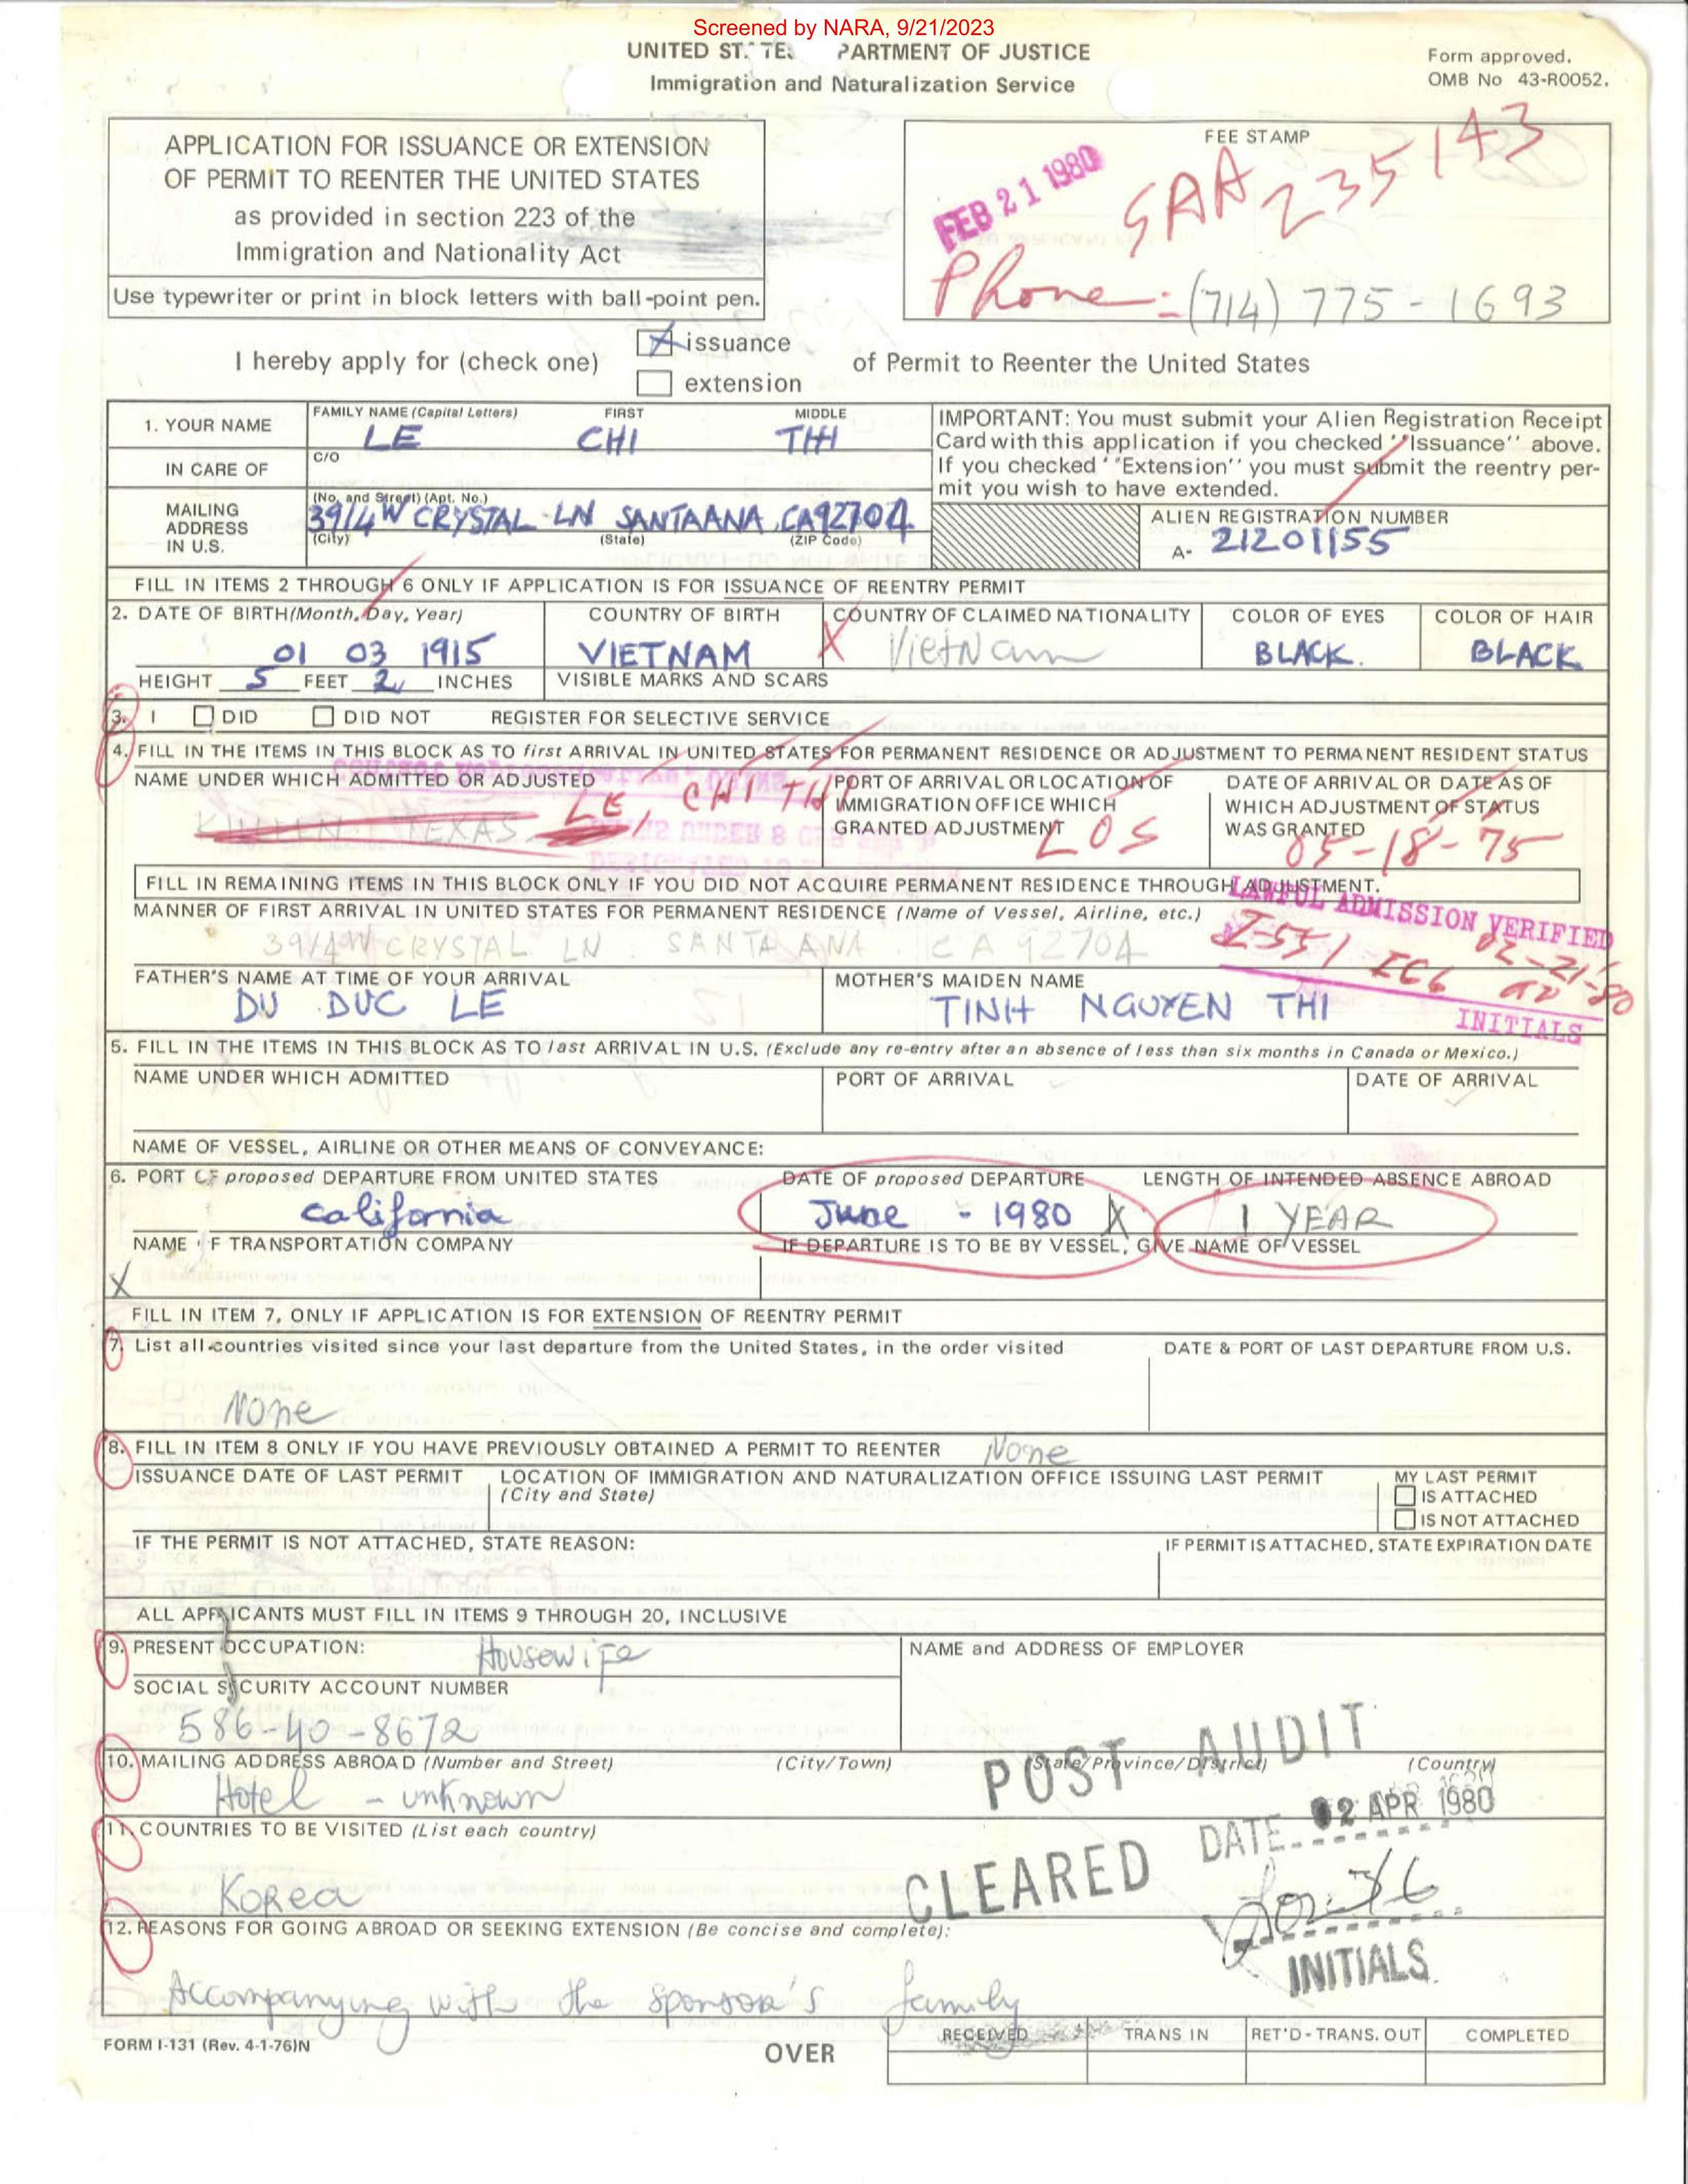 Screened by NARA, 9/21/2023
UNITED ST TE PARTMENT OF JUSTICE
Immigration and Naturalization Service
Form approved.
OMB No 43-R0052.
APPLICATION FOR ISSUANCE OR EXTENSION
OF PERMIT TO REENTER THE UNITED STATES
as provided in section 223 of the
Immigration and Nationality Act
Use typewriter or print in block letters with ball-point pen.
FEE STAMP
FEB 21 1980
SAA 235143
Phone - (714) 775-1693
I hereby apply for (check one)
issuance
extension
of Permit to Reenter the United States
1. YOUR NAME
FAMILY NAME (Capital Letters) FIRST MIDDLE
LE CHI THI
IN CARE OF
C/O
MAILING
ADDRESS
IN U.S.
(No. and Street) (Apt. No.)
3914 W CRYSTAL LN SANTA ANA, CA 92704
(City) (State) (ZIP Code)
IMPORTANT: You must submit your Alien Registration Receipt
Card with this application if you checked ''Issuance'' above.
If you checked ''Extension'' you must submit the reentry per-
mit you wish to have extended.
ALIEN REGISTRATION NUMBER
A- 21201155
FILL IN ITEMS 2 THROUGH 6 ONLY IF APPLICATION IS FOR ISSUANCE OF REENTRY PERMIT
2. DATE OF BIRTH (Month, Day, Year) COUNTRY OF BIRTH COUNTRY OF CLAIMED NATIONALITY COLOR OF EYES COLOR OF HAIR
01 03 1915 VIETNAM X VietNam BLACK. BLACK
HEIGHT 5 FEET 2 INCHES VISIBLE MARKS AND SCARS
3. I DID DID NOT REGISTER FOR SELECTIVE SERVICE
4. FILL IN THE ITEMS IN THIS BLOCK AS TO first ARRIVAL IN UNITED STATES FOR PERMANENT RESIDENCE OR ADJUSTMENT TO PERMANENT RESIDENT STATUS
NAME UNDER WHICH ADMITTED OR ADJUSTED
TEXAS
LE, CHI THI
PORT OF ARRIVAL OR LOCATION OF
IMMIGRATION OFFICE WHICH
GRANTED ADJUSTMENT
LOS
DATE OF ARRIVAL OR DATE AS OF
WHICH ADJUSTMENT OF STATUS
WAS GRANTED
05-18-75
FILL IN REMAINING ITEMS IN THIS BLOCK ONLY IF YOU DID NOT ACQUIRE PERMANENT RESIDENCE THROUGH ADJUSTMENT.
MANNER OF FIRST ARRIVAL IN UNITED STATES FOR PERMANENT RESIDENCE (Name of Vessel, Airline, etc.)
3914 W CRYSTAL LN. SANTA ANA CA 92704
LAWFUL ADMISSION VERIFIED
I-551 02-21-80
INITIALS
FATHER'S NAME AT TIME OF YOUR ARRIVAL
DU DUC LE
MOTHER'S MAIDEN NAME
TINH NGUYEN THI
5. FILL IN THE ITEMS IN THIS BLOCK AS TO last ARRIVAL IN U.S. (Exclude any re-entry after an absence of less than six months in Canada or Mexico.)
NAME UNDER WHICH ADMITTED PORT OF ARRIVAL DATE OF ARRIVAL
NAME OF VESSEL, AIRLINE OR OTHER MEANS OF CONVEYANCE:
6. PORT OF proposed DEPARTURE FROM UNITED STATES DATE OF proposed DEPARTURE LENGTH OF INTENDED ABSENCE ABROAD
California June - 1980 X 1 YEAR
NAME F TRANSPORTATION COMPANY IF DEPARTURE IS TO BE BY VESSEL, GIVE NAME OF VESSEL
X
FILL IN ITEM 7, ONLY IF APPLICATION IS FOR EXTENSION OF REENTRY PERMIT
7. List all countries visited since your last departure from the United States, in the order visited DATE & PORT OF LAST DEPARTURE FROM U.S.
None
8. FILL IN ITEM 8 ONLY IF YOU HAVE PREVIOUSLY OBTAINED A PERMIT TO REENTER None
ISSUANCE DATE OF LAST PERMIT LOCATION OF IMMIGRATION AND NATURALIZATION OFFICE ISSUING LAST PERMIT
(City and State)
MY LAST PERMIT
IS ATTACHED
IS NOT ATTACHED
IF THE PERMIT IS NOT ATTACHED, STATE REASON: IF PERMIT IS ATTACHED, STATE EXPIRATION DATE
ALL APPLICANTS MUST FILL IN ITEMS 9 THROUGH 20, INCLUSIVE
9. PRESENT OCCUPATION: Housewife
NAME and ADDRESS OF EMPLOYER
SOCIAL SECURITY ACCOUNT NUMBER
586-40-8672
10. MAILING ADDRESS ABROAD (Number and Street) (City/Town) (State/Province/District) (Country)
Hotel - unknown
POST AUDIT
CLEARED
DATE 02 APR 1980
INITIALS
11. COUNTRIES TO BE VISITED (List each country)
Korea
12. REASONS FOR GOING ABROAD OR SEEKING EXTENSION (Be concise and complete):
Accompanying with the sponsor's family
FORM I-131 (Rev. 4-1-76)N
OVER
RECEIVED TRANS IN RET'D-TRANS. OUT COMPLETED